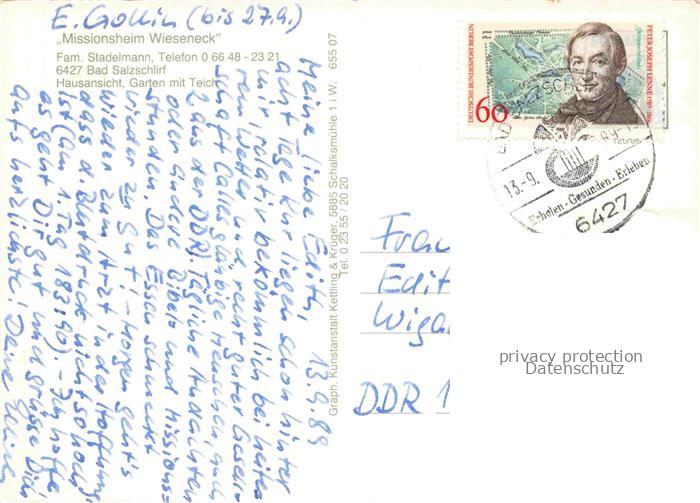 E. Gollin (bis 27.9.)
„Missionsheim Wieseneck"
Fam. Stadelmann, Telefon 0 66 48 - 23 21
6427 Bad Salzschlirf
Hausansicht, Garten mit Teich
13.9.89
Meine liebe Edith,
acht Tage Kur liegen schon hinter
mir, relativ bekömmlich bei heite-
rem Wetter und recht guter Gesell-
schaft (alles gläubige Menschen, auch
2 aus der DDR). Tägliche Andachten
oder andere Bibel- und Missions-
stunden. Das Essen schmeckt
wieder zu gut! - Morgen geht's
wieder zum Arzt in der Hoffnung,
dass d. Blutdruck nicht so hoch
ist (am 1. Tag 183:90). - Ich hoffe,
es geht Dir gut und grüsse Dich
aufs herzlichste! Deine
Graph. Kunstanstalt Kettling & Krüger, 5885 Schalksmühle 1 i.W. 655 07
Tel. 0 23 55 / 20 20
DEUTSCHE BUNDESPOST BERLIN
60
PETER JOSEPH LENNÉ 1789-1866
13.-9.
Erholen-Gesunden-Erleben
6427
Frau
Edit
Wiga
DDR 1
privacy protection
Datenschutz